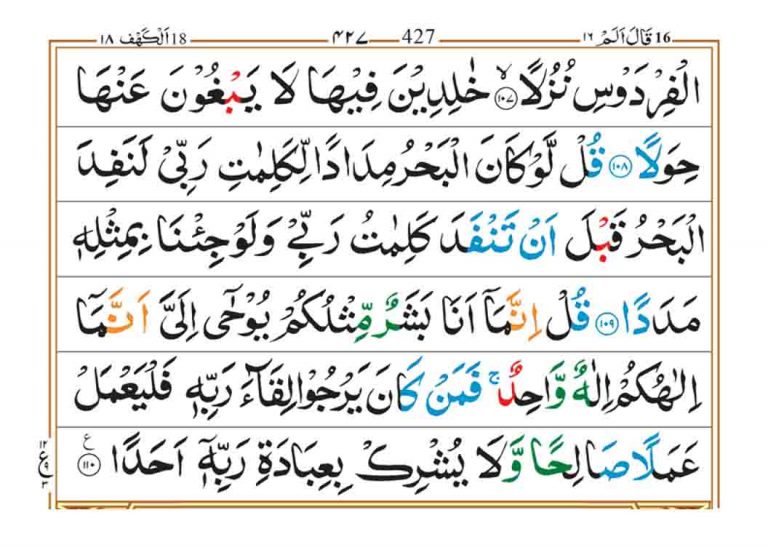 16 قَالَ اَلَمْ ١٦ 427 ٤٢٧ 18 اَلْكَهْف ١٨
الْفِرْدَوْسِ نُزُلًا ۙ‏﴿۱۰۷﴾ خٰلِدِيْنَ فِيْهَا لَا يَبْغُوْنَ عَنْهَا
حِوَلًا ﴿۱۰۸﴾ قُلْ لَّوْ كَانَ الْبَحْرُ مِدَادًا لِّكَلِمٰتِ رَبِّىْ لَنَفِدَ
الْبَحْرُ قَبْلَ اَنْ تَنْفَدَ كَلِمٰتُ رَبِّىْ وَلَوْ جِئْنَا بِمِثْلِهٖ
مَدَدًا ﴿۱۰۹﴾ قُلْ اِنَّمَاۤ اَنَا بَشَرٌ مِّثْلُكُمْ يُوْحٰٓى اِلَىَّ اَنَّمَاۤ
اِلٰهُكُمْ اِلٰهٌ وَّاحِدٌ ۚ فَمَنْ كَانَ يَرْجُوْا لِقَآءَ رَبِّهٖ فَلْيَعْمَلْ
عَمَلًا صَالِحًا وَّلَا يُشْرِكْ بِعِبَادَةِ رَبِّهٖۤ اَحَدًا ﴿۱۱۰﴾ ع
١٢
ع
٩
٣